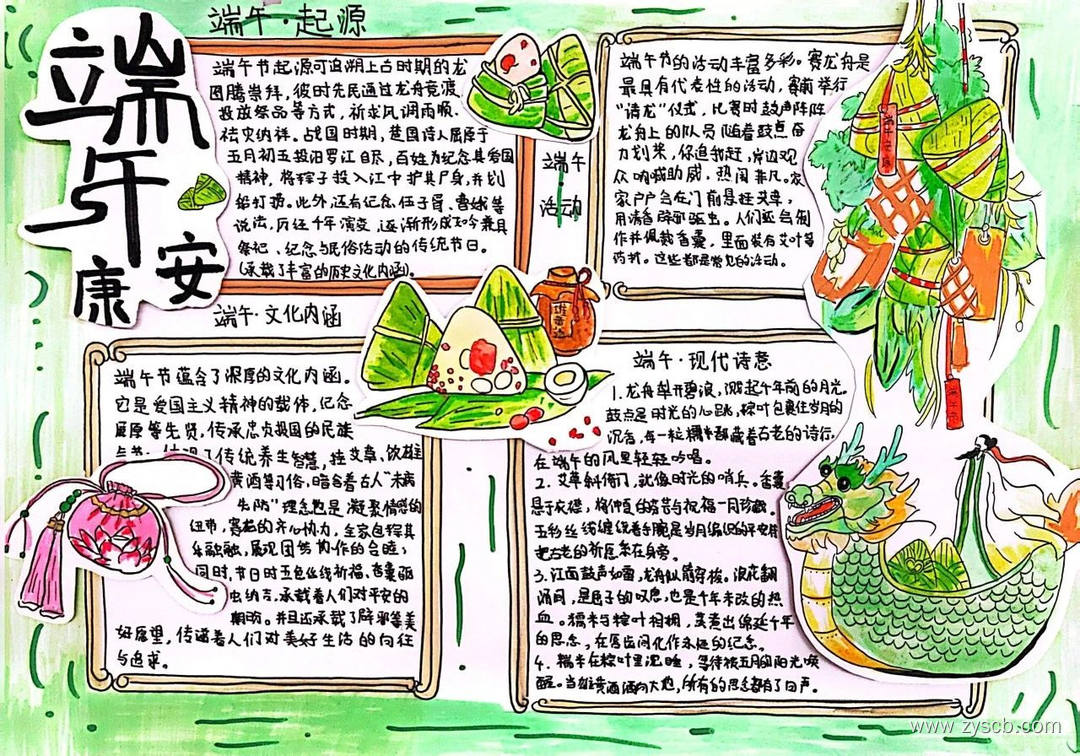 端午安康
端午·起源
端午节起源可追溯上古时期的龙
图腾崇拜，彼时先民通过龙舟竞渡
投放祭品等方式，祈求风调雨顺、
祛灾纳祥。战国时期，楚国诗人屈原于
五月初五投汨罗江自尽，百姓为纪念其爱国
精神，将粽子投入江中护其尸身，并划
船打捞。此外，还有纪念伍子胥、曹娥等
说法，历经千年演变，逐渐形成如今兼具
祭祀、纪念与民俗活动的传统节日。
（承载了丰富的历史文化内涵）。
端午
活动
端午节的活动丰富多彩。赛龙舟是
最具有代表性的活动，赛前举行
“请龙”仪式，比赛时鼓声阵阵
龙舟上的队员随着鼓点奋
力划桨，你追我赶，岸边观
众呐喊助威，热闹非凡。家
家户户会在门前悬挂艾草，
用清香辟邪驱虫。人们还会制
作并佩戴香囊，里面装有艾叶等
药材。这些都是常见的活动。
端午安康
端午·文化内涵
端午节蕴含了深厚的文化内涵。
它是爱国主义精神的载体，纪念
屈原等先贤，传承忠贞报国的民族
传统养生智慧，挂艾草、饮雄
黄酒等习俗，暗含着古人“未病
先防”理念也是凝聚情感的
纽带，赛龙舟的齐心协力，全家包粽其
乐融融，展现团结协作的
同时，节日时五色丝线祈福、香囊驱
虫纳吉，承载着人们对平安的
期盼。并且还承载了辟邪等美
好愿望，传递着人们对美好生活的向往
与追求。
雄黄酒
端午·现代诗意
1.龙舟犁开碧浪，溅起千年前的月光。
鼓点是时光的心跳，粽叶包裹住岁月的
沉香，每一粒糯米都藏着古老的诗行，
在端午的风里轻轻吟唱。
2.艾草斜倚门，就像时光的哨兵。香囊
悬于衣襟，将仲夏的芬芳与祝福一同珍藏，
五彩丝线缠绕着手腕是岁月编织的平安绳
把古老的祈愿系在身旁。
3.江面鼓声如雷，龙舟似箭穿梭。浪花翻
涌间，是屈子的叹息，也是千年未改的热
血。糯米与粽叶相拥，蒸煮出绵延千年
的思念，在唇齿间化作永恒的纪念。
4.糯米在粽叶里沉睡，等待被五月的阳光唤
醒。当雄黄酒洒向大地，所有的思念都有了回声。
www.zyscb.com